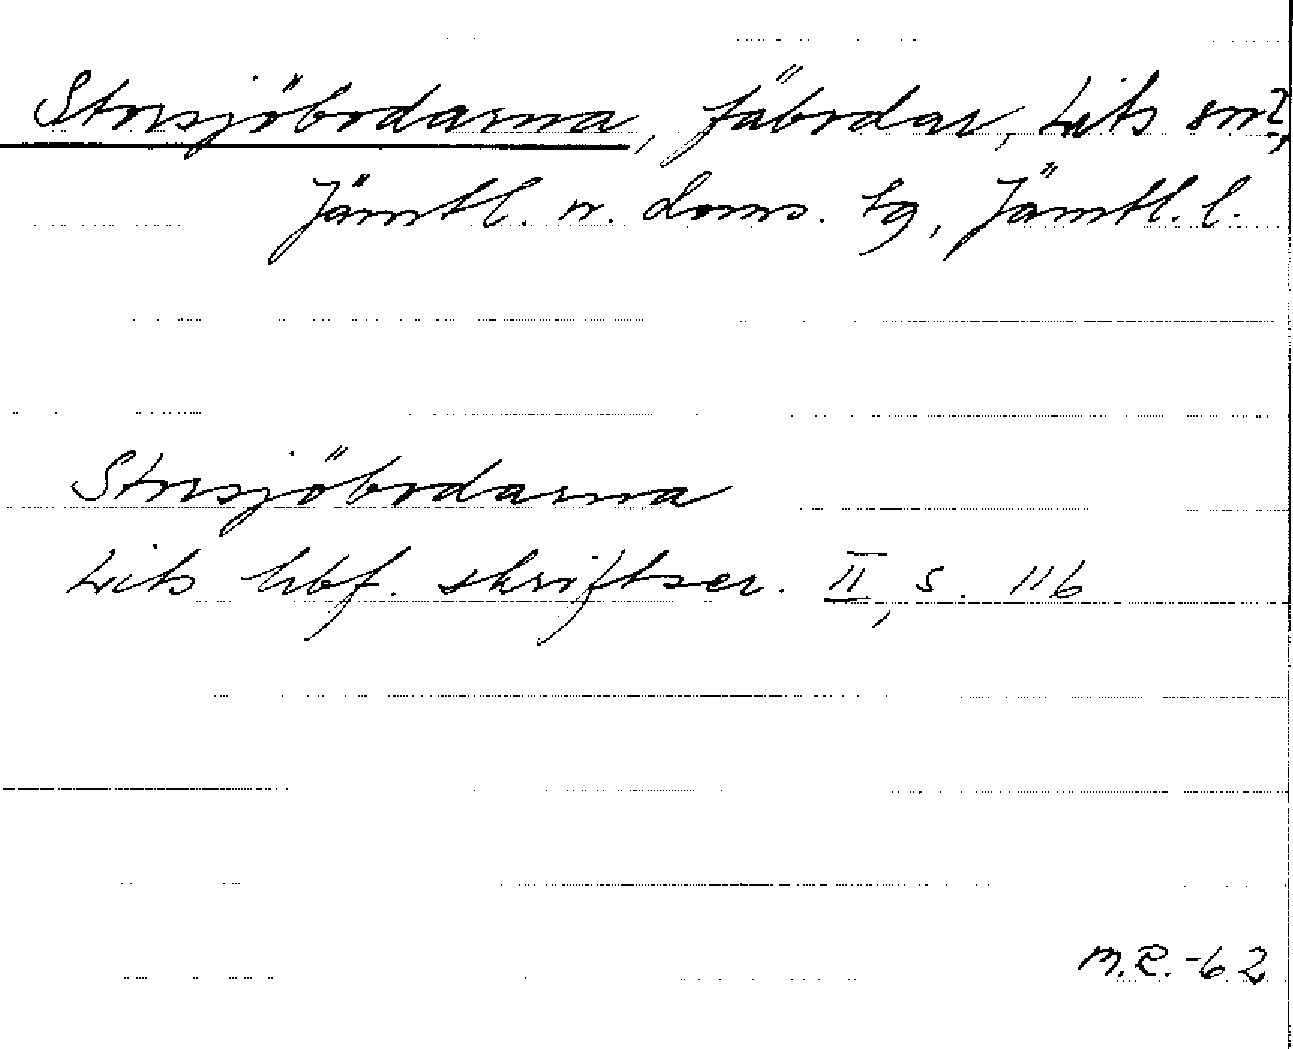 Storsjöbodarna, fäbodar, Lits sn,
Jämtl. n. doms. tg, Jämtl. l.
Storsjöbodarna
Lits hbf. skriftser. II, s. 116
M.R.-62